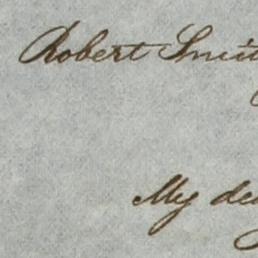 Robert Smit
My dea